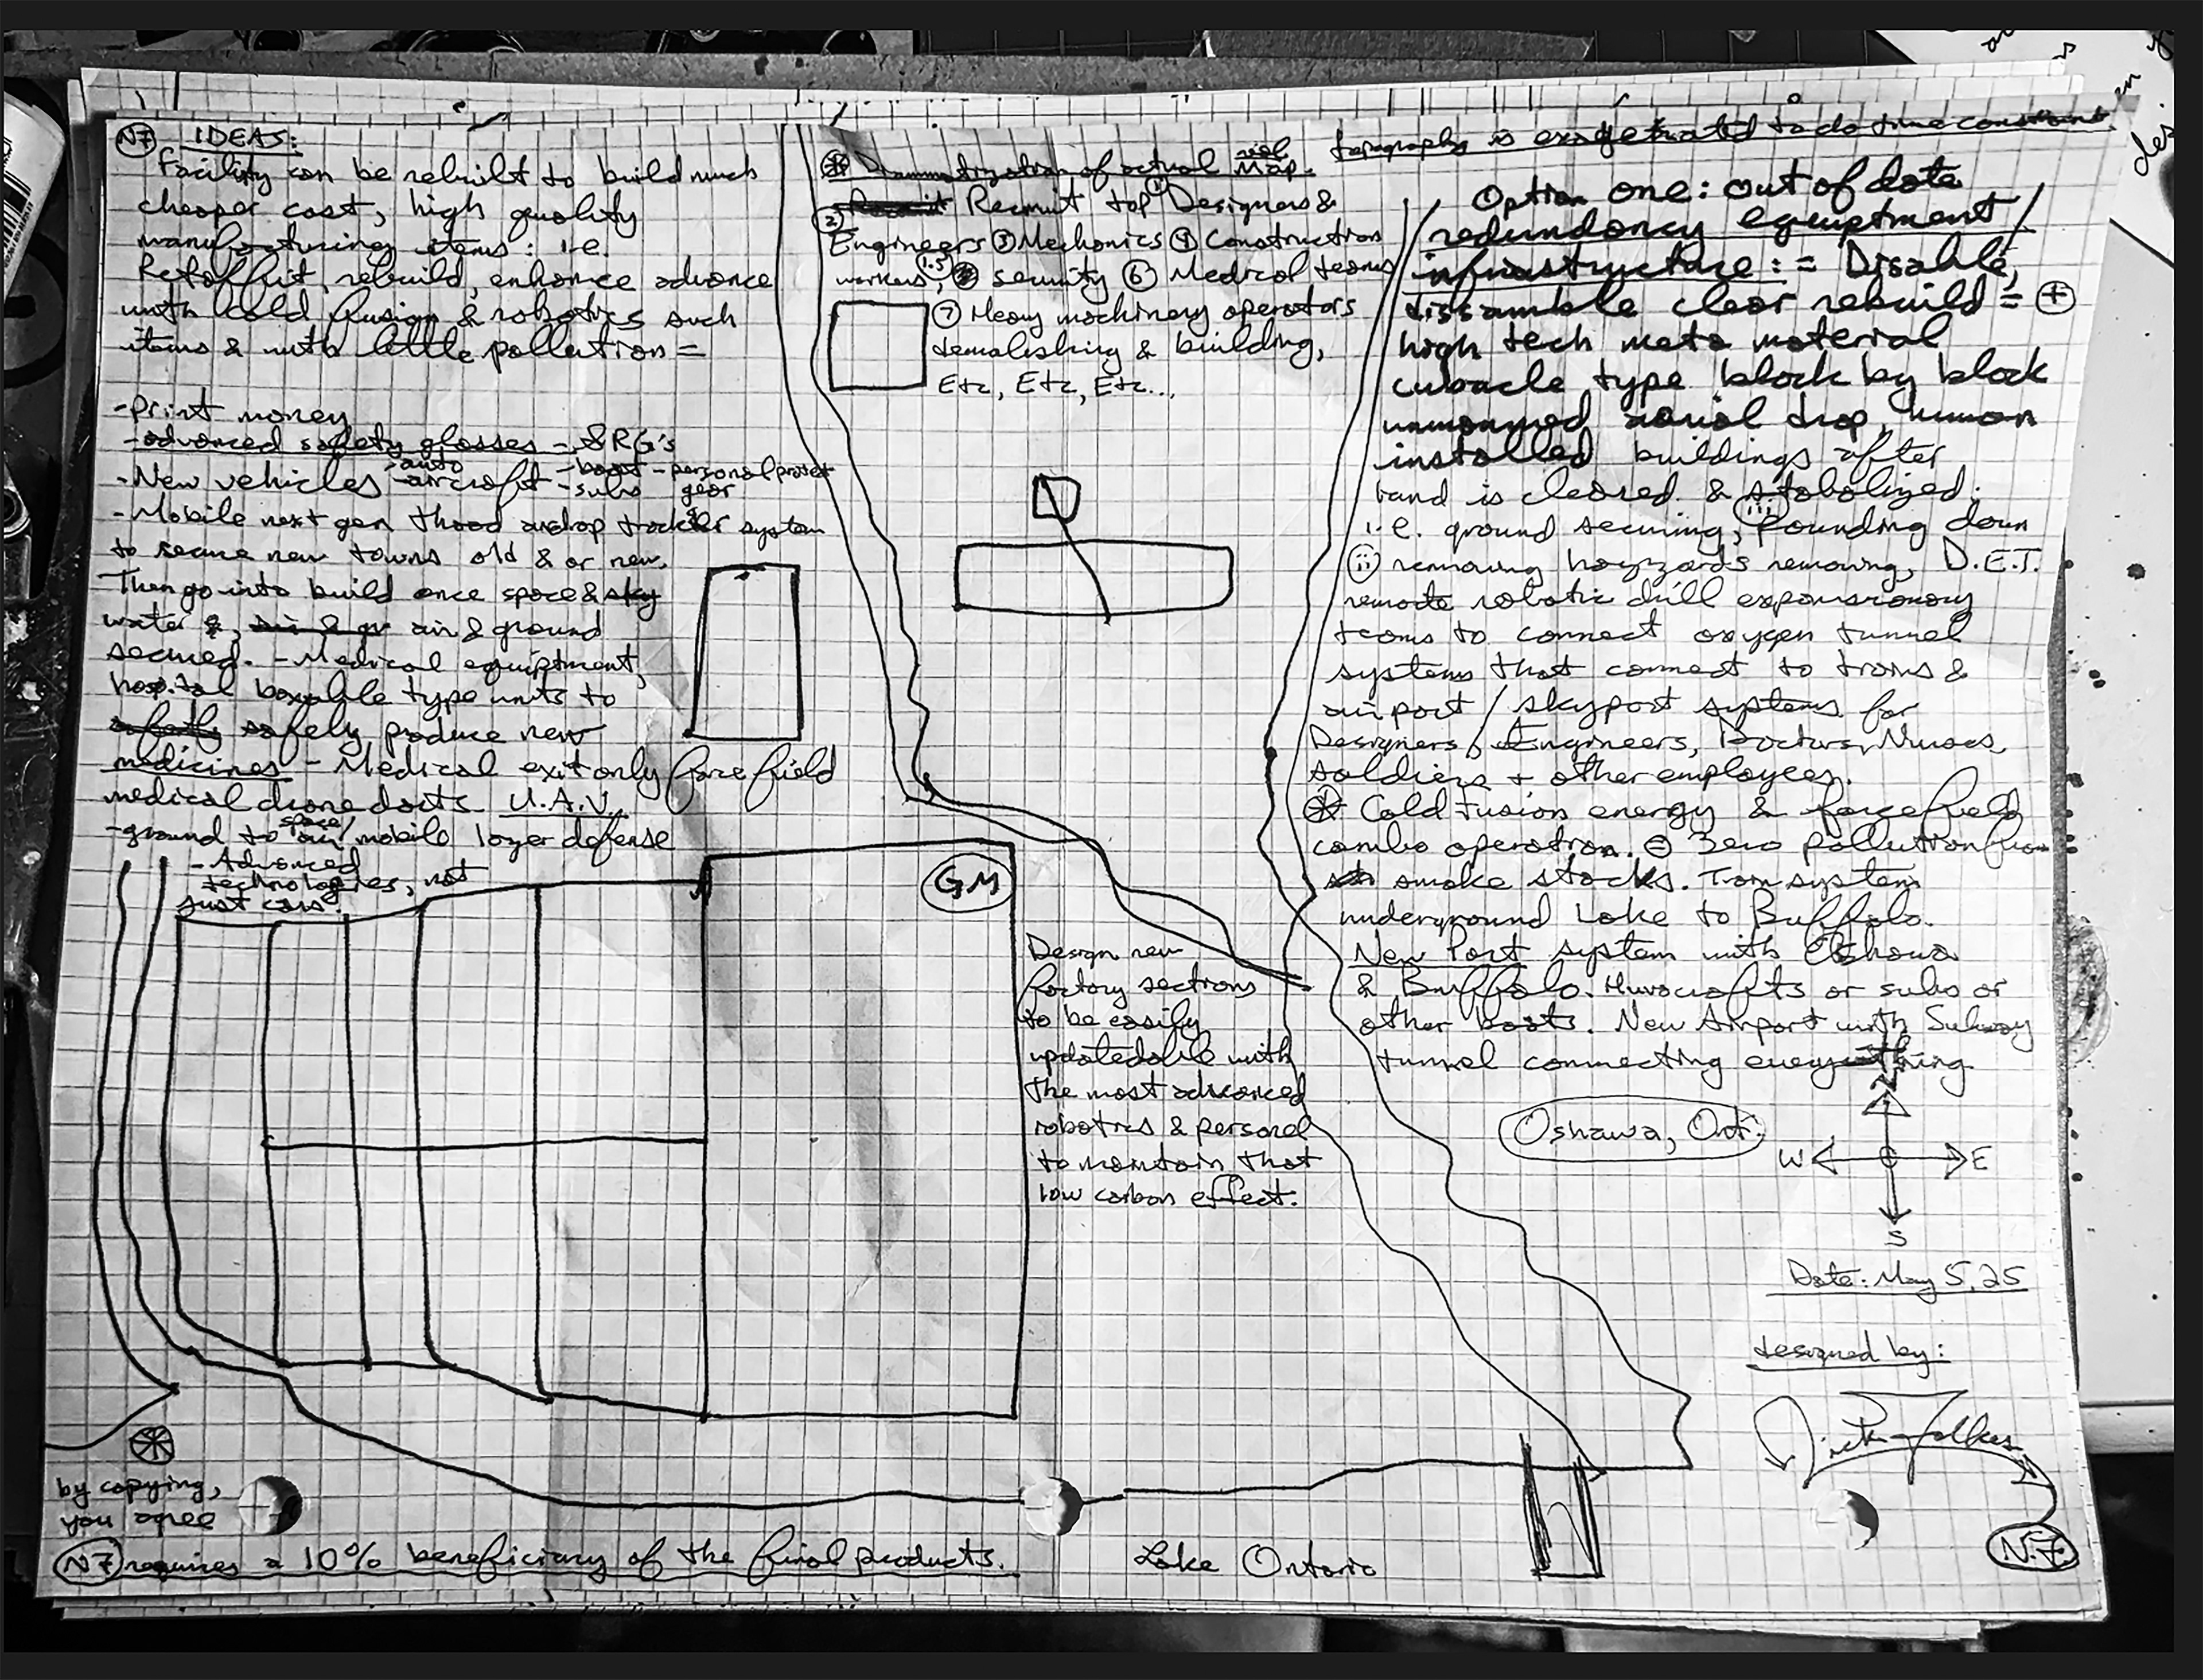 N7 IDEAS:
Facility can be rebuilt to build much
cheaper cost, high quality
manufacturing items: i.e.
Retoffit, rebuild, enhance advance
with Cold fusion & robotics such
items & with little pollution =
-print money
-advanced safety glasses - SRG's
-New vehicles -auto -aircraft -boat -subs -personal protect gear
-Mobile next gen airdrop system
to secure new towns old & or new.
Then go into build once space & sky
water &, air & ground
secured. - Medical equiptment,
hospital type units to
safely safely produce new
medicines - Medical exit only force field
medical drone darts U.A.V.
-ground to space/air mobile lazer defense
-Advanced
technologies, not
just cars!
of actual map.
Recruit Recruit top Designers &
② Engineers ③ Mechanics ④ Construction
workers, security ⑥ Medical teams
⑦ Heavy machinery operators
demolishing & building,
Etc, Etc, Etc...
topography is exagerated to do time constraint
Option one: out of date
redundancy equiptment /
infrustructure: = Disable,
dissamble clear rebuild = +
high tech meta material
cubacle type block by block
unmanned aerial drop, human
installed buildings after
land is cleared & stabolized.
i.e. ground securing, Pounding down
removing hazzards removing, D.E.T.
remote robotic drill expansionary
teams to connect oxygen tunnel
systems that connect to trains &
airport / skyport systems for
Designers, Engineers, Doctors, Nurses,
soldiers + other employees.
Cold Fusion energy & forcefield
combo operation. = Zero pollution from
smoke stacks. Tram system
underground Lake to Buffalo.
New Port system with Oshawa
& Buffalo. Huvacrafts or subs or
other boats. New Airport with Subway
tunnel connecting everything
GM
Design new
factory sections
to be easily
updatedable with
the most advanced
robotics & personel
to maintain that
low carbon effect.
Oshawa, Ont.
N
W E
S
Date: May 5, 25
designed by:
N.F.
by copying,
you agree
N7 requires a 10% beneficiary of the final products.
Lake Ontario